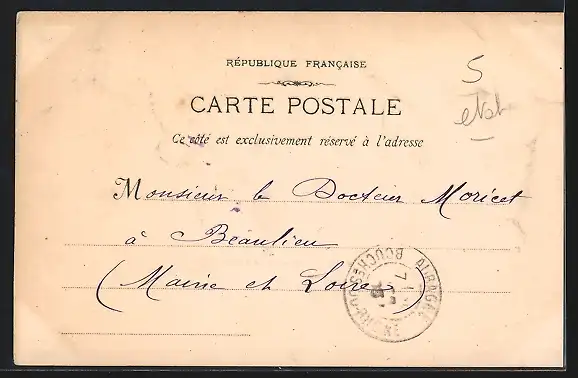 RÉPUBLIQUE FRANÇAISE
CARTE POSTALE
Ce côté est exclusivement réservé à l'adresse
Monsieur le Docteur Moricet
à Beaulieu
(Maine et Loire)
5
etat
BOUCHES-DU-RHONE
7